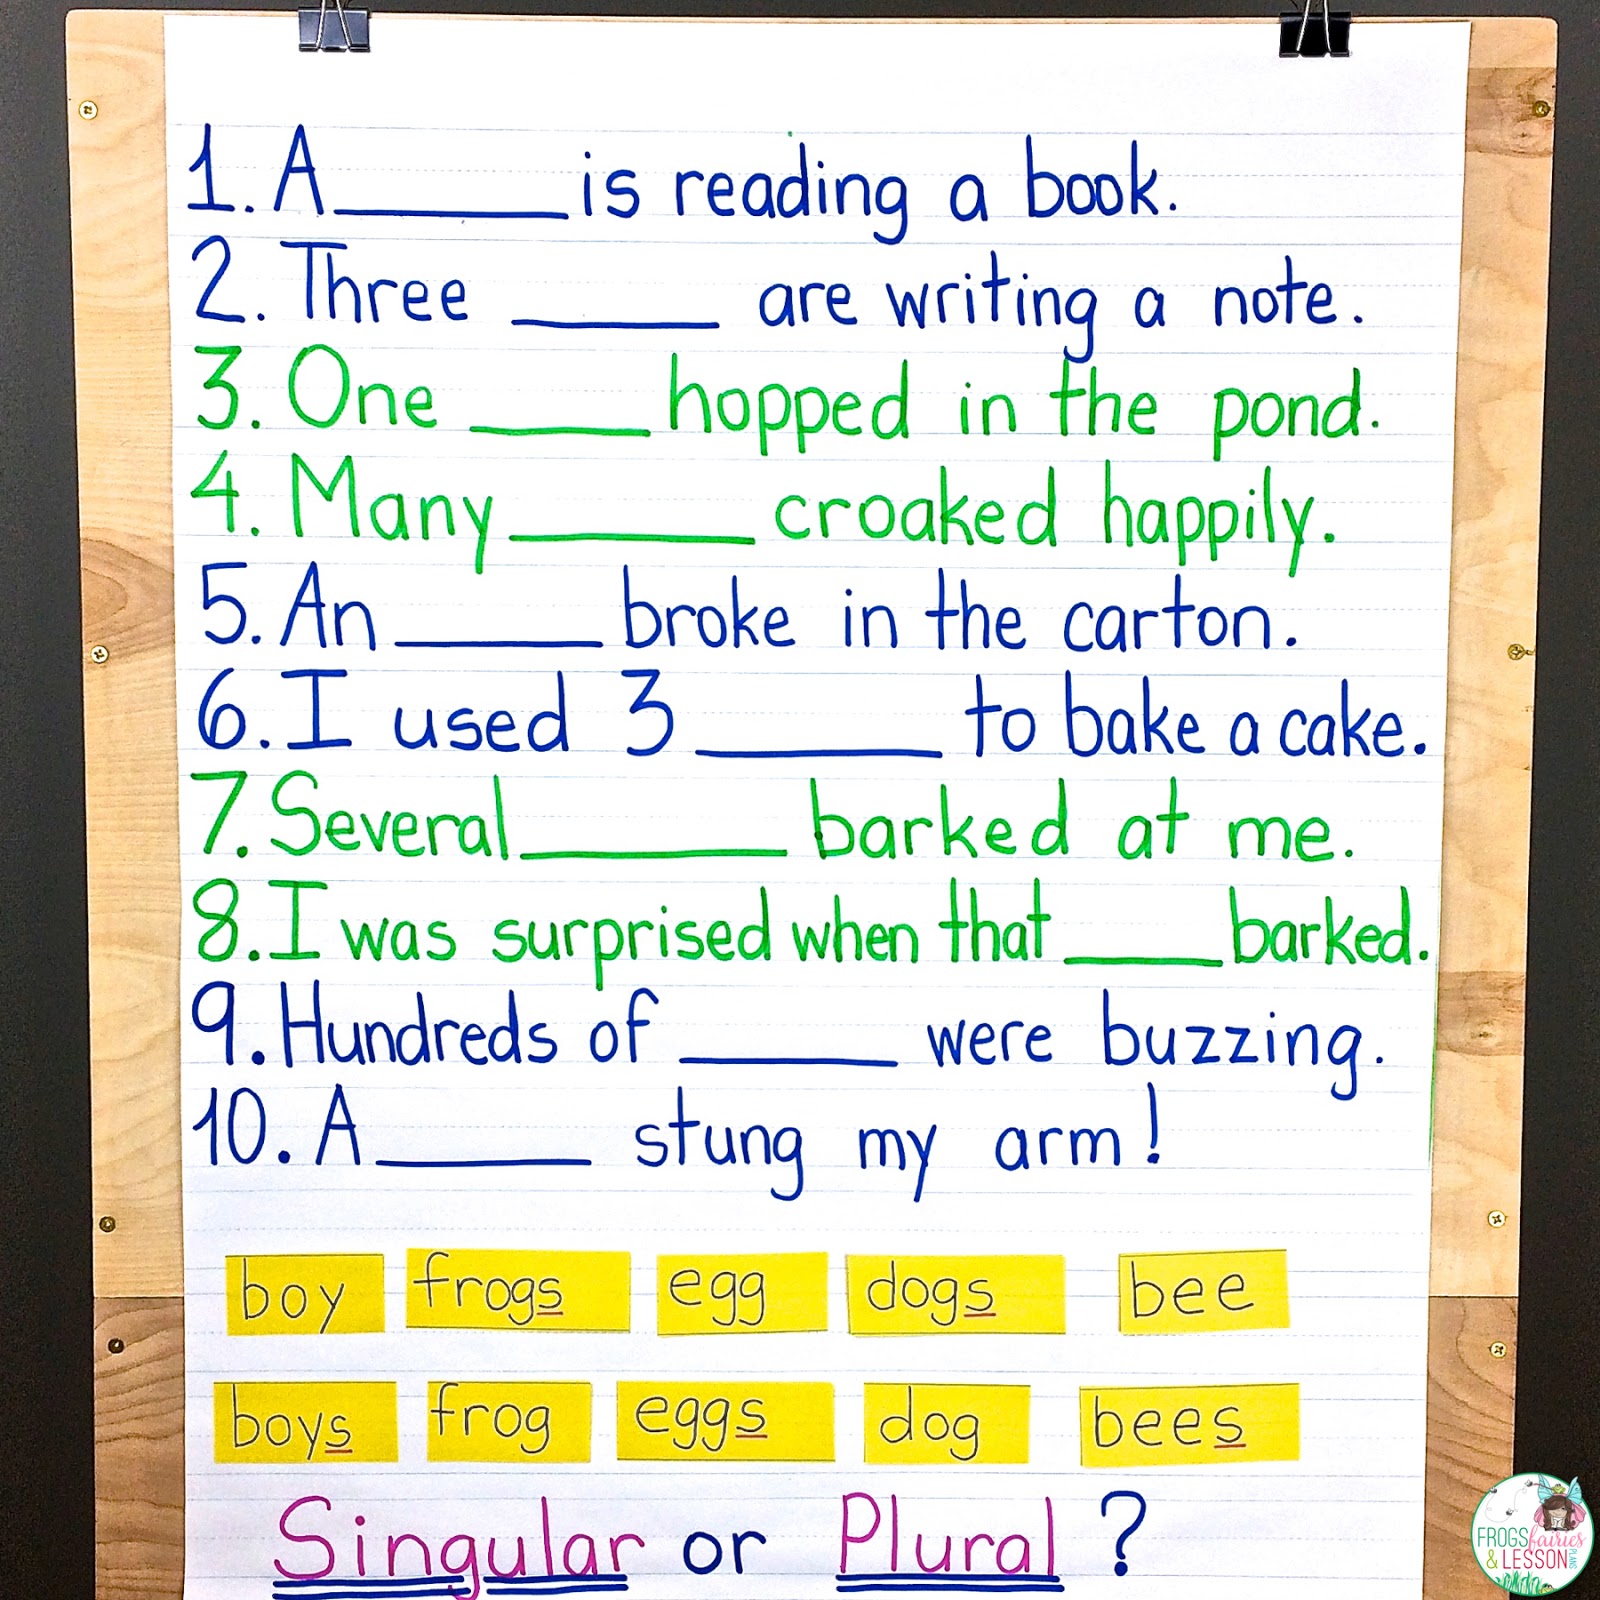 1. A_____ is reading a book.
2. Three _____ are writing a note.
3. One _____ hopped in the pond.
4. Many _____ croaked happily.
5. An _____ broke in the carton.
6. I used 3 _____ to bake a cake.
7. Several _____ barked at me.
8. I was surprised when that _____ barked.
9. Hundreds of _____ were buzzing.
10. A _____ stung my arm!
boy frogs egg dogs bee
boys frog eggs dog bees
Singular or Plural?
FROGS fairies
& LESSON PLANS